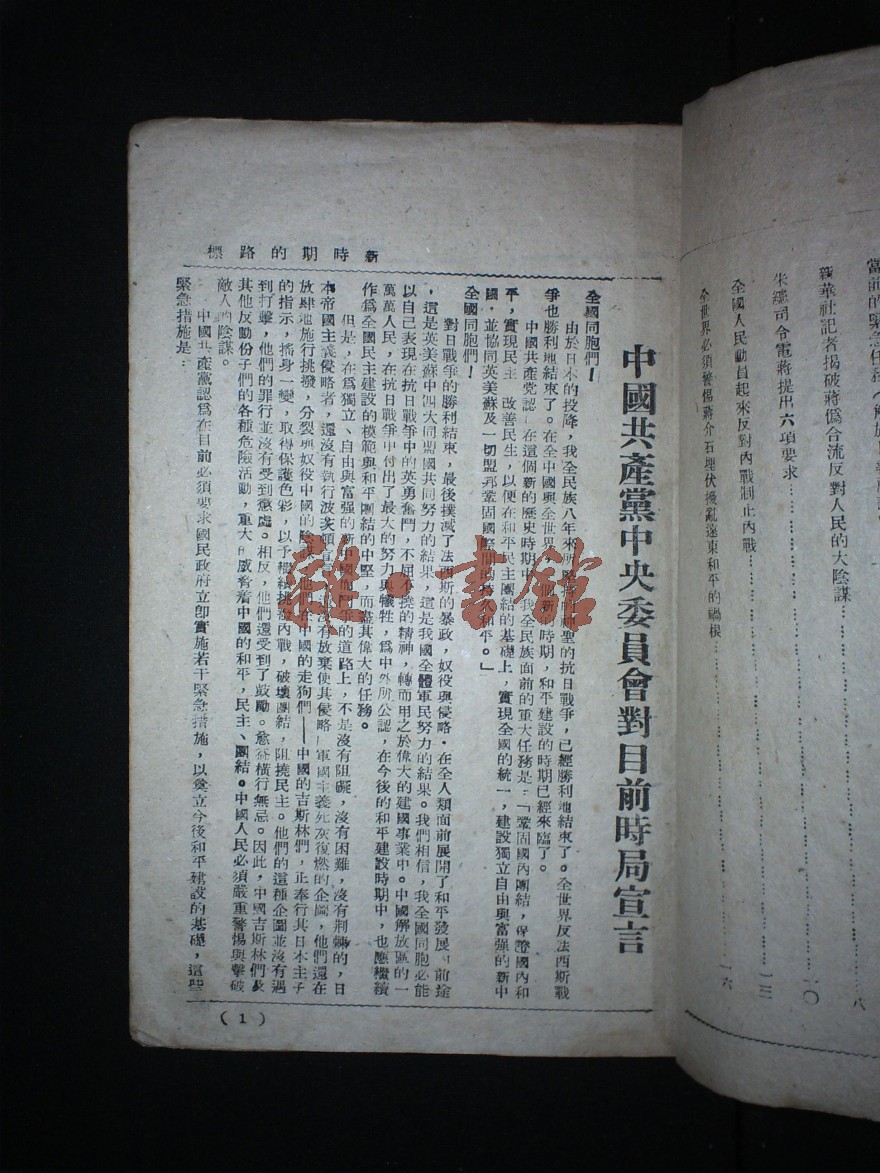 當前的緊急任務（解放日報社論）
新華社記者揭破蔣偽合流反對人民的大陰謀……八
朱總司令電蔣提出六項要求……一〇
全國人民動員起來反對內戰制止內戰……一三
全世界必須警惕蔣介石埋伏擾亂遠東和平的禍根……一六
新時期的路標
中國共產黨中央委員會對目前時局宣言
全國同胞們！
由於日本的投降，我全民族八年來所堅持的神聖的抗日戰爭，已經勝利地結束了。全世界反法西斯戰
爭也勝利地結束了。在全中國與全世界，一個新的時期，和平建設的時期已經來臨了。
中國共產党認 在這個新的歷史時期中，我全民族面前的重大任務是：「鞏固國內團結，保證國內和
平，實現民主 改善民生，以便在和平民主團結的基礎上，實現全國的統一，建設獨立自由與富强的新中
國，並協同英美蘇及一切盟邦鞏固國際間的持久和平。」
全國同胞們！
對日戰爭的勝利結束，最後撲滅了法西斯的暴政，奴役與侵略，在全人類面前展開了和平發展 前途
，這是英美蘇中四大同盟國共同努力的結果，這是我國全體軍民努力的結果。我們相信，我全國同胞必能
以自己表現在抗日戰爭中的英勇奮鬥，不屈不撓的精神，轉而用之於偉大的建國事業中。中國解放區的一
萬萬人民，在抗日戰爭中付出了最大的努力與犧牲，爲中外所公認，在今後的和平建設時期中，也應繼續
作爲全國民主建設的模範與和平團結的中堅，而盡其偉大的任務。
但是，在爲獨立、自由與富强的新中國而鬥爭的道路上，不是沒有阻礙，沒有困難，沒有荆棘的，日
本帝國主義侵略者，還沒有執行波茨頓宣言， 沒有放棄使其侵略 軍國主義死灰復燃的企圖，他們還在
放肆地施行挑撥，分裂與奴役中國的陰謀，他們在中國的走狗們——中國的吉斯林們，正奉行其日本主子
的指示，搖身一變，取得保護色彩，以予繼續挑撥內戰，破壞團結，阻撓民主。他們的這種企圖並沒有遇
到打擊，他們的罪行並沒有受到懲處。相反，他們還受到了鼓勵。愈益橫行無忌。因此，中國吉斯林們及
其他反動份子們的各種危險活動，重大的威脅着中國的和平，民主、團結。中國人民必須嚴重警惕與擊破
敵人的陰謀。
中國共產黨認爲在目前必須要求國民政府立卽實施若干緊急措施，以奠立今後和平建設的基礎，這些
緊急措施是：
（1）
雜·書館